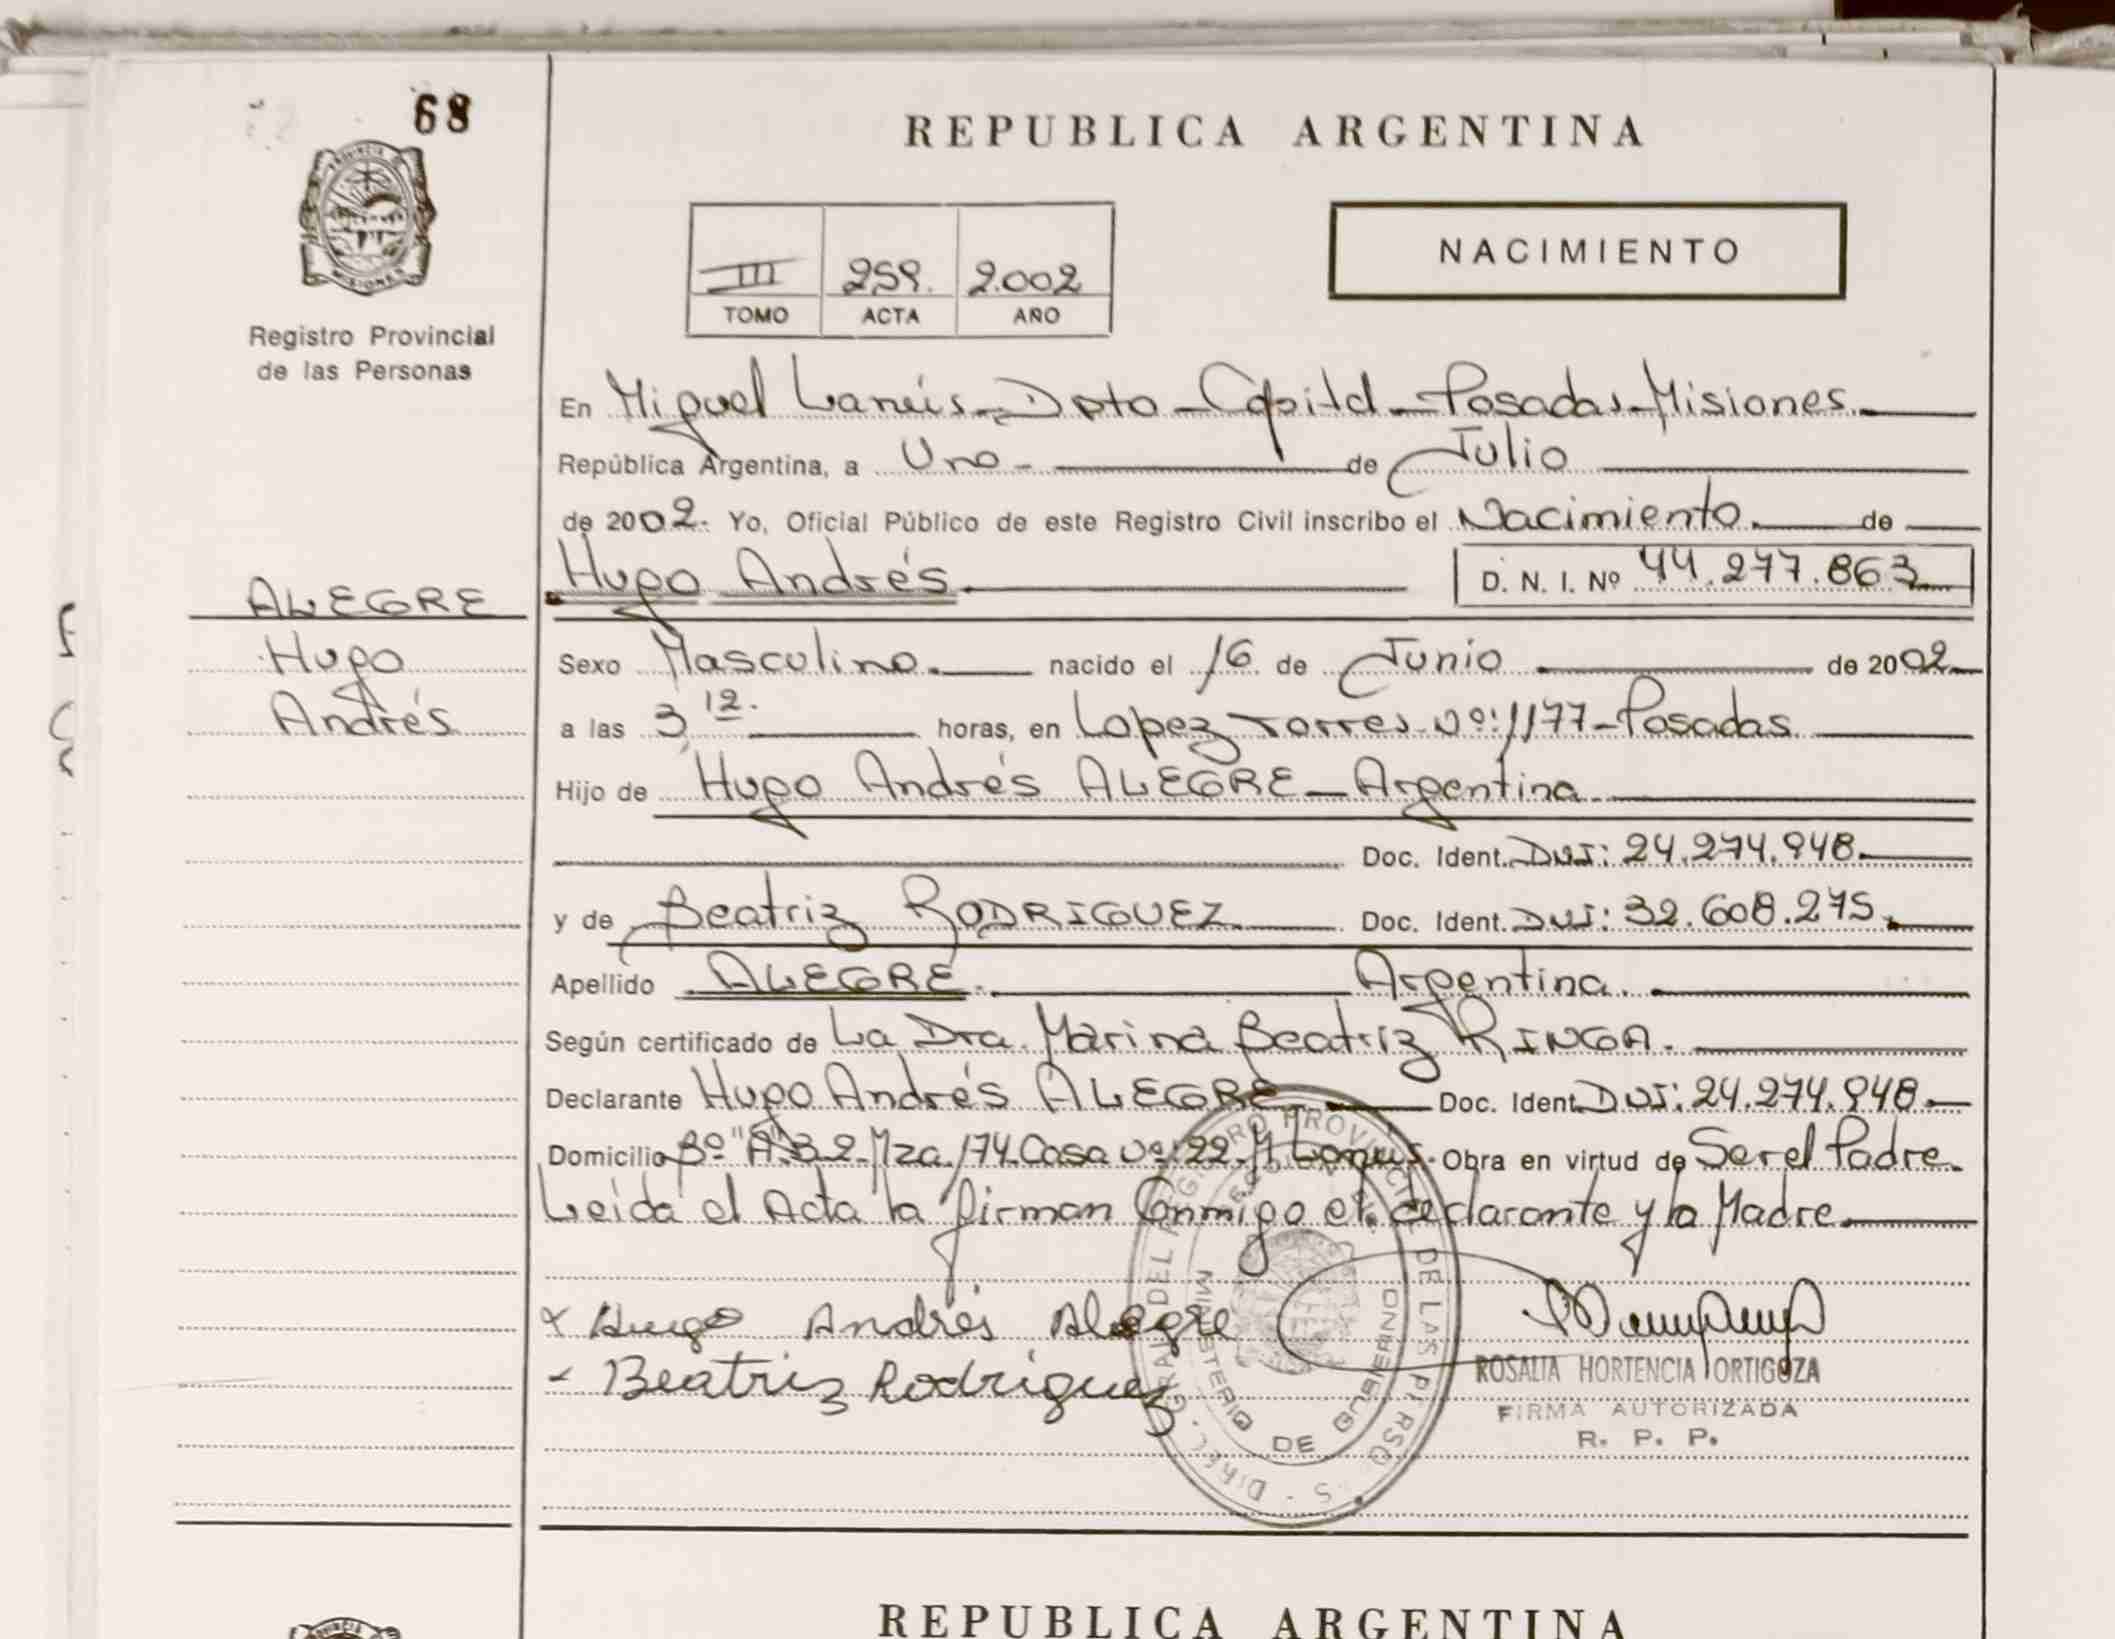 68
REPUBLICA ARGENTINA
PROVINCIA DE
MISIONES
Registro Provincial
de las Personas
III 259. 2.002
TOMO ACTA AÑO
NACIMIENTO
En Miguel Lanús - Dpto - Capital - Posadas - Misiones.
República Argentina, a Uno - de Julio
de 2002. Yo, Oficial Público de este Registro Civil inscribo el Nacimiento. de
Hugo Andrés. D. N. I. Nº 44.277.863
ALEGRE
Hugo
Andrés
Sexo Masculino. nacido el 16 de Junio de 2002
a las 3,12. horas, en Lopez Torres Nº: 1177 - Posadas
Hijo de Hugo Andrés ALEGRE - Argentina.
Doc. Ident. DNI: 24.274.948.
y de Beatriz RODRIGUEZ. Doc. Ident. DNI: 32.608.275.
Apellido ALEGRE. Argentina.
Según certificado de La Dra. Marina Beatriz RINGA.
Declarante Hugo Andrés ALEGRE Doc. Ident. DNI: 24.274.948.
Domicilio Bº "A" 3.2. Mza. 174. Casa Nº: 22. M Lanús. Obra en virtud de Ser el Padre.
Leída el Acta la firman Conmigo el declarante y la Madre.
x Hugo Andrés Alegre
- Beatriz Rodriguez
ROSALIA HORTENCIA ORTIGOZA
FIRMA AUTORIZADA
R. P. P.
MINISTERIO DE GOBIERNO
REPUBLICA ARGENTINA
PROVINCIA